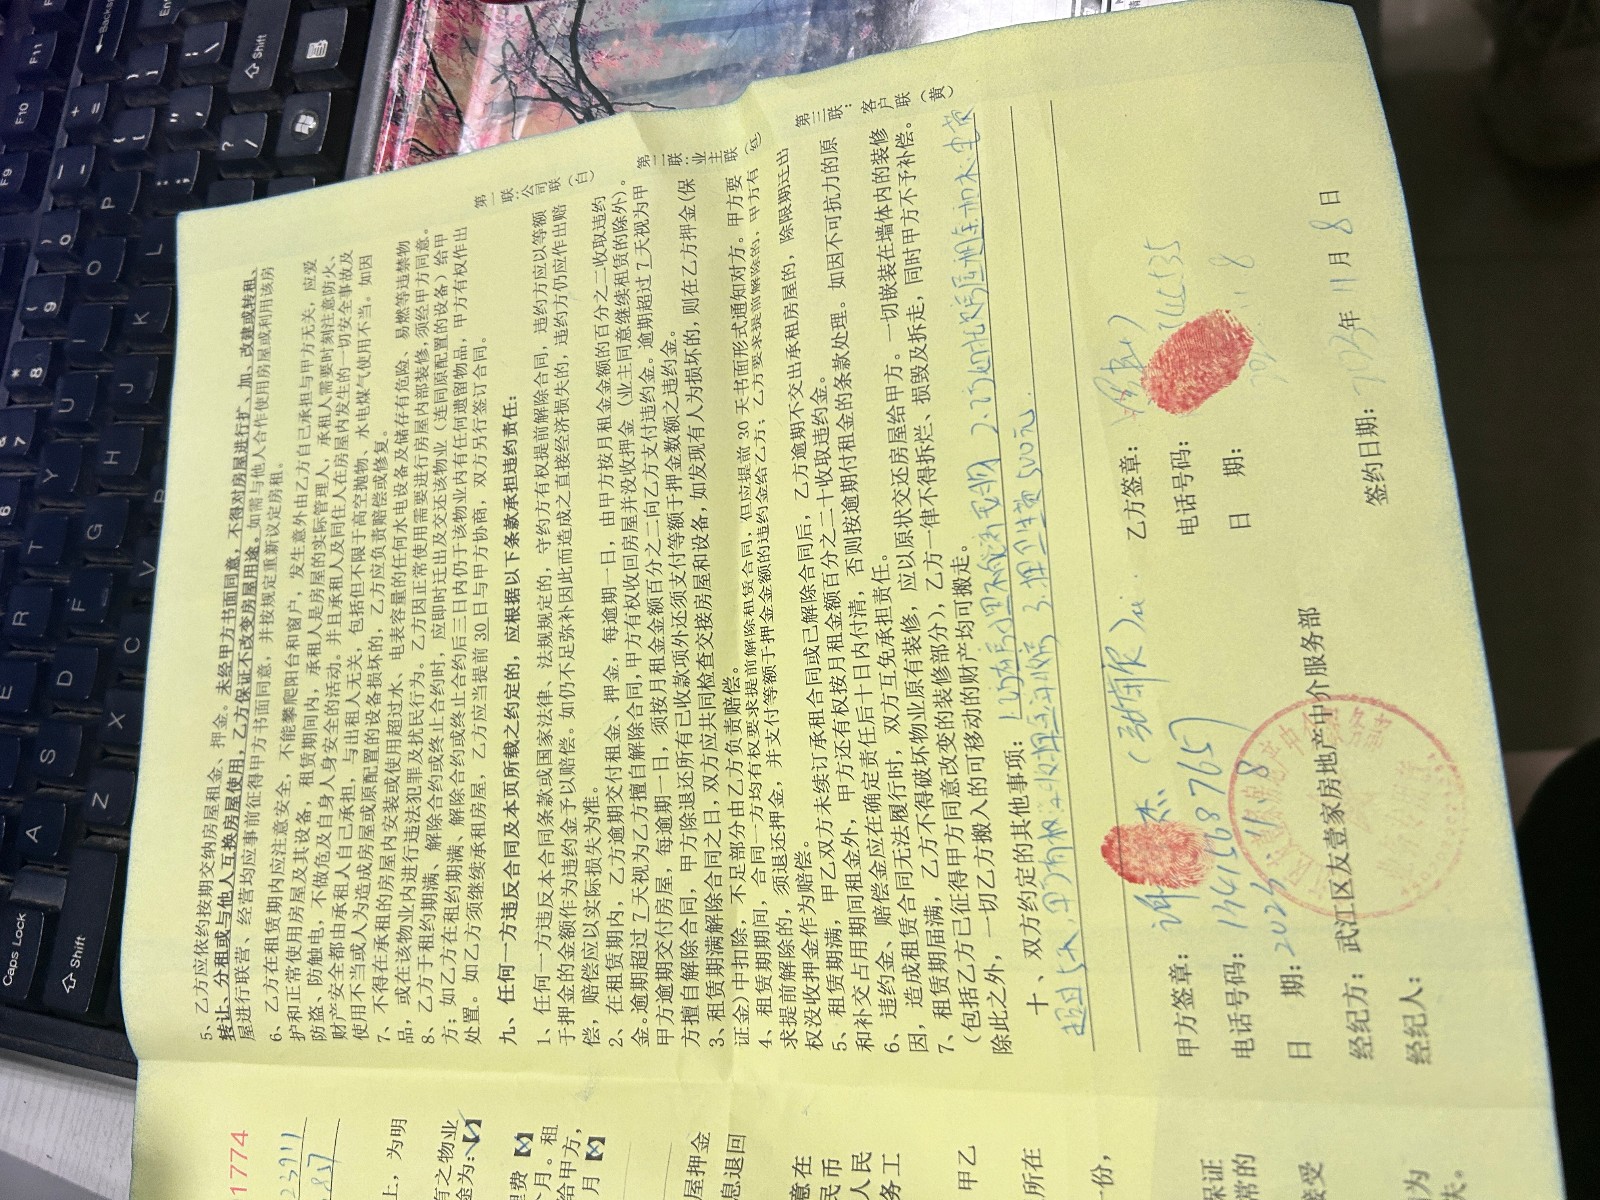 5、乙方应依约按期交纳房屋租金、押金。未经甲方书面同意，不得对房屋进行扩、加、改建或转租、
转让、分租或与他人互换房屋使用，乙方保证不改变房屋用途。如需与他人合作使用房屋或利用该房
屋进行联营、经营均应事前征得甲方书面同意，并按规定重新议定房租。
6、乙方在租赁期内应注意安全，不能攀爬阳台和窗户，发生意外由乙方自己承担与甲方无关，应爱
护和正常使用房屋及其设备，租赁期间内，承租人是房屋的实际管理人，承租人需要时刻注意防火、
防盗、防触电，不做危及自身人身安全的活动。并且承租人及同住人在房屋内发生的一切安全事故及
财产安全都由承租人自己承担，与出租人无关，包括但不限于高空抛物、水电煤气使用不当。如因
使用不当或人为造成房屋或原配置的设备损坏的，乙方应负责赔偿或修复。
7、不得在承租的房屋内安装或使用超过水、电表容量的任何水电设备及储存有危险、易燃等违禁物
品，或在该物业内进行违法犯罪及扰民行为。乙方因正常使用需要进行房屋内部装修，须经甲方同意。
8、乙方于租约期满、解除合约或终止合约时，应即时迁出及交还该物业（连同原配置的设备）给甲
方；如乙方在租约期满、解除合约或终止合约后三日内仍于该物业内有任何遗留物品，甲方有权作出
处置。如乙方须继续承租房屋，乙方应当提前 30 日与甲方协商，双方另行签订合同。
九、任何一方违反合同及本页所载之约定的，应根据以下条款承担违约责任：
1、任何一方违反本合同条款或国家法律、法规规定的，守约方有权提前解除合同，违约方应以等额
于押金的金额作为违约金予以赔偿。如仍不足弥补因此而造成之直接经济损失的，违约方仍应作出赔
偿，赔偿应以实际损失为准。
2、在租赁期内，乙方逾期交付租金、押金，每逾期一日，由甲方按月租金金额的百分之二收取违约
金。逾期超过 7 天视为乙方擅自解除合同，甲方有权收回房屋并没收押金（业主同意继续租赁的除外）。
甲方逾期交付房屋，每逾期一日，须按月租金金额百分之二向乙方支付违约金。逾期超过 7 天视为甲
方擅自解除合同，甲方除退还所有已收款项外还须支付等额于押金数额之违约金。
3、租赁期满解除合同之日，双方应共同检查交接房屋和设备，如发现有人为损坏的，则在乙方押金（保
证金）中扣除，不足部分由乙方负责赔偿。
4、租赁期期间，合同一方均有权要求提前解除租赁合同，但应提前 30 天书面形式通知对方。甲方要
求提前解除的，须退还押金，并支付等额于押金金额的违约金给乙方；乙方要求提前解除的，甲方有
权没收押金作为赔偿。
5、租赁期满，甲乙双方未续订承租合同或已解除合同后，乙方逾期不交出承租房屋的，除限期迁出
和补交占用期间租金外，甲方还有权按月租金额百分之二十收取违约金。
6、违约金、赔偿金应在确定责任后十日内付清，否则按逾期付租金的条款处理。如因不可抗力的原
因，造成租赁合同无法履行时，双方互免承担责任。
7、租赁期届满，乙方不得破坏物业原有装修，应以原状交还房屋给甲方。一切嵌装在墙体内的装修
（包括乙方已征得甲方同意改变的装修部分），乙方一律不得拆烂、损毁及拆走，同时甲方不予补偿。
除此之外，一切乙方搬入的可移动的财产均可搬走。
十、双方约定的其他事项：
3.押卫生费500元.
第一联：公司联（白）
第二联：业主联（红）
第三联：客户联（黄）
甲方签章：
电话号码：
日 期：2023 11 8
乙方签章：
电话号码：
日 期：
经纪方：武江区友壹家房地产中介服务部
经纪人：
签约日期：2023年11月8日
1774
上，为明
有之物业
途为：
理费
月。租
给甲方，
月
屋押金
息退回
意在
民币
人民
务工
甲乙
所在
份，
保证
常的
接受
为
失。
Caps Lock
Shift
A
Z
S
X
E
D
C
R
F
V
T
G
B
6
Y
H
7
U
J
8
I
K
9
O
L
P
F9
F10
F11
Shift
Backsp